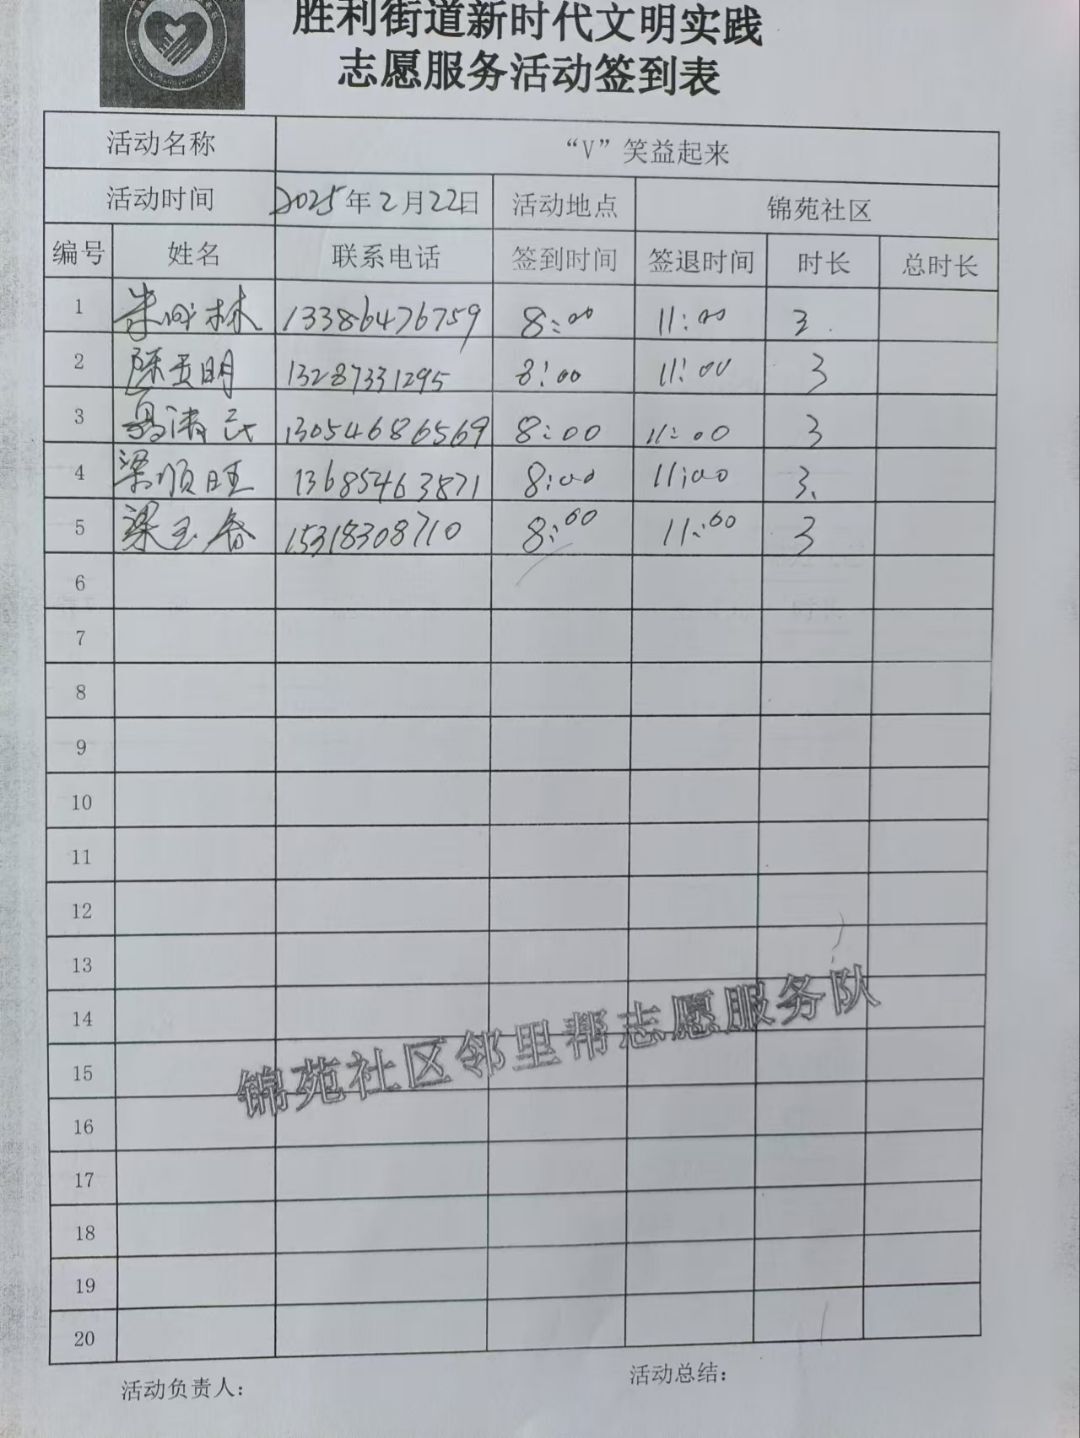 胜利街道新时代文明实践
志愿服务活动签到表
活动名称 “V”笑益起来
活动时间 2025年2月22日 活动地点 锦苑社区
编号 姓名 联系电话 签到时间 签退时间 时长 总时长
1 朱 林 13386476759 8:00 11:00 3.
2 陈 明 13287331295 8:00 11:00 3
3 13054686569 8:00 11:00 3
4 梁顺旺 13685463871 8:00 11:00 3、
5 梁玉春 15318308710 8:00 11:00 3
6
7
8
9
10
11
12
13
14
15
16
17
18
19
20
锦苑社区邻里帮志愿服务队
活动负责人: 活动总结: